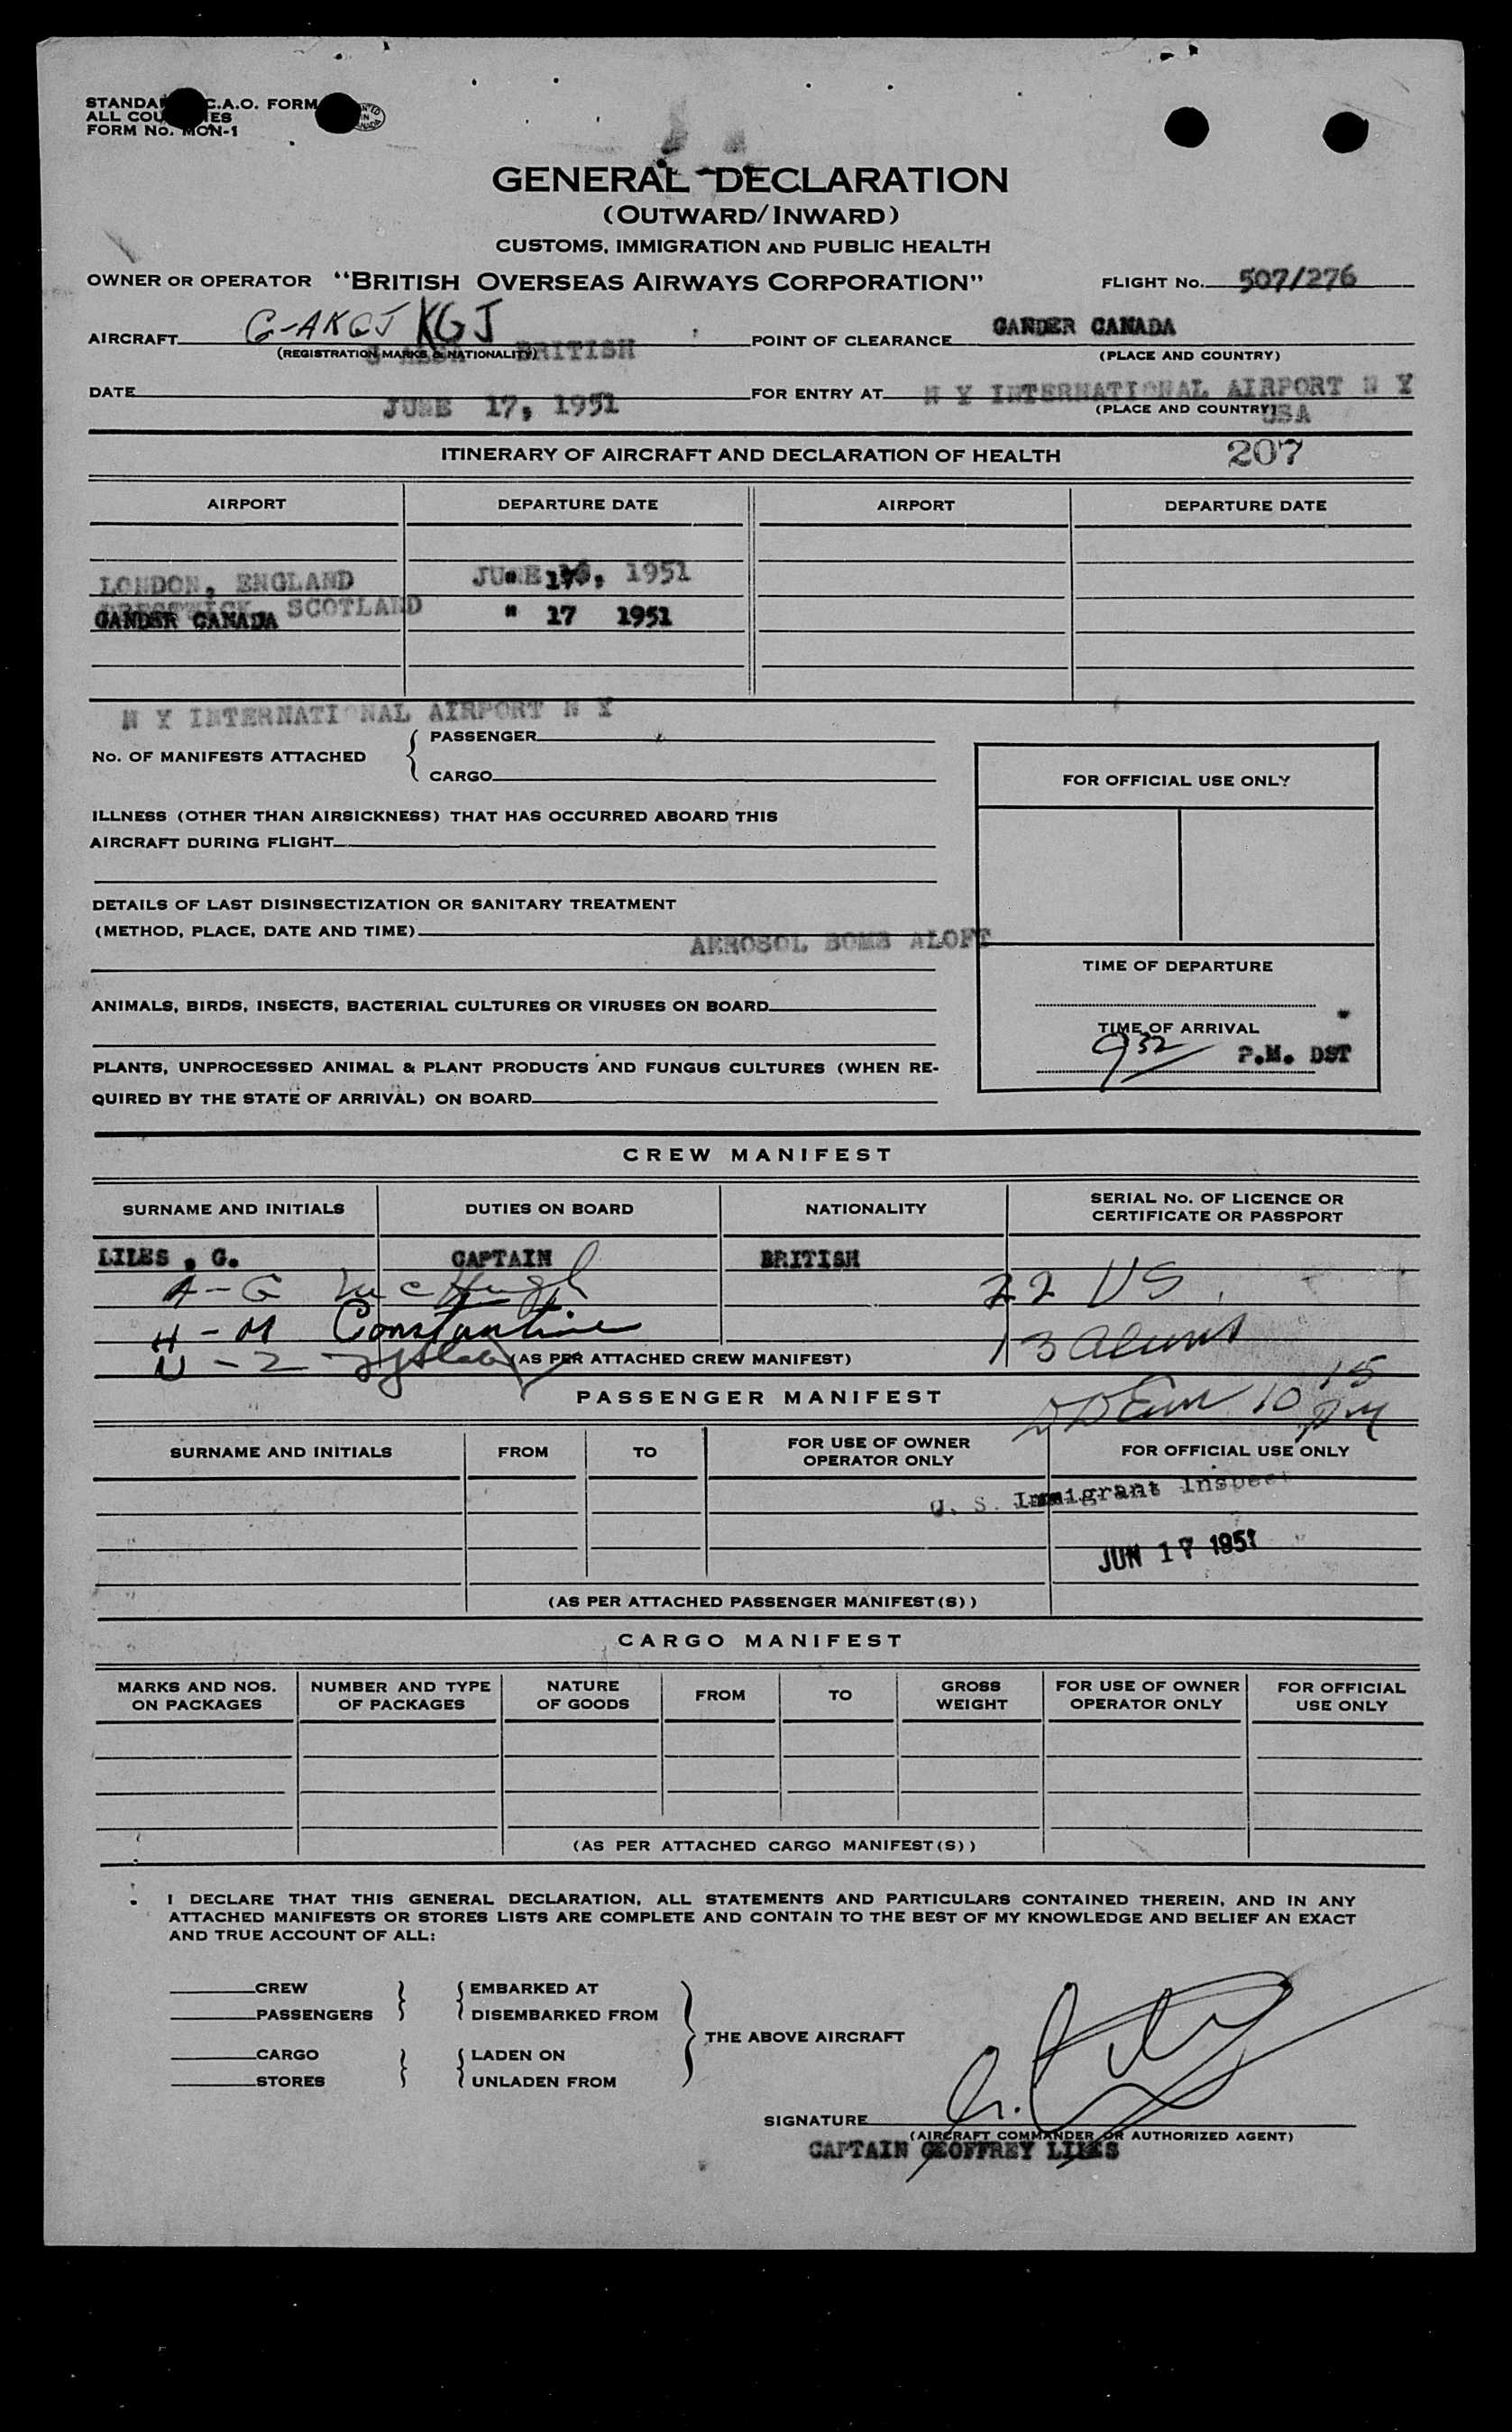 STANDA C.A.O. FORM
ALL COU ES
FORM No. MON-1
GENERAL DECLARATION
(OUTWARD/INWARD)
CUSTOMS, IMMIGRATION AND PUBLIC HEALTH
OWNER OR OPERATOR "BRITISH OVERSEAS AIRWAYS CORPORATION" FLIGHT No. 507/276
AIRCRAFT G-AKGJ KGJ POINT OF CLEARANCE GANDER CANADA
(REGISTRATION MARKS & NATIONALITY) BRITISH (PLACE AND COUNTRY)
DATE JUNE 17, 1951 FOR ENTRY AT N Y INTERNATIONAL AIRPORT N Y
(PLACE AND COUNTRY) USA
ITINERARY OF AIRCRAFT AND DECLARATION OF HEALTH 207
AIRPORT DEPARTURE DATE AIRPORT DEPARTURE DATE
LONDON, ENGLAND JUNE 1951
PRESTWICK, SCOTLAND
GANDER CANADA " 17 1951
N Y INTERNATIONAL AIRPORT N Y
No. OF MANIFESTS ATTACHED
PASSENGER
CARGO
ILLNESS (OTHER THAN AIRSICKNESS) THAT HAS OCCURRED ABOARD THIS
AIRCRAFT DURING FLIGHT
DETAILS OF LAST DISINSECTIZATION OR SANITARY TREATMENT
(METHOD, PLACE, DATE AND TIME) AEROSOL BOMB ALOFT
ANIMALS, BIRDS, INSECTS, BACTERIAL CULTURES OR VIRUSES ON BOARD
PLANTS, UNPROCESSED ANIMAL & PLANT PRODUCTS AND FUNGUS CULTURES (WHEN RE-
QUIRED BY THE STATE OF ARRIVAL) ON BOARD
FOR OFFICIAL USE ONLY
TIME OF DEPARTURE
TIME OF ARRIVAL
932 P.M. DST
CREW MANIFEST
SURNAME AND INITIALS DUTIES ON BOARD NATIONALITY SERIAL No. OF LICENCE OR
CERTIFICATE OR PASSPORT
LILES , G. CAPTAIN BRITISH
A-G McHugh 22 US
H-M Constantine
N-Z 13 Aliens
(AS PER ATTACHED CREW MANIFEST)
PASSENGER MANIFEST 10 15 PM
SURNAME AND INITIALS FROM TO FOR USE OF OWNER
OPERATOR ONLY FOR OFFICIAL USE ONLY
U. S. Immigrant Inspec
JUN 17 1951
(AS PER ATTACHED PASSENGER MANIFEST(S))
CARGO MANIFEST
MARKS AND NOS.
ON PACKAGES NUMBER AND TYPE
OF PACKAGES NATURE
OF GOODS FROM TO GROSS
WEIGHT FOR USE OF OWNER
OPERATOR ONLY FOR OFFICIAL
USE ONLY
(AS PER ATTACHED CARGO MANIFEST(S))
I DECLARE THAT THIS GENERAL DECLARATION, ALL STATEMENTS AND PARTICULARS CONTAINED THEREIN, AND IN ANY
ATTACHED MANIFESTS OR STORES LISTS ARE COMPLETE AND CONTAIN TO THE BEST OF MY KNOWLEDGE AND BELIEF AN EXACT
AND TRUE ACCOUNT OF ALL:
CREW EMBARKED AT
PASSENGERS DISEMBARKED FROM
THE ABOVE AIRCRAFT
CARGO LADEN ON
STORES UNLADEN FROM
SIGNATURE
(AIRCRAFT COMMANDER OR AUTHORIZED AGENT)
CAPTAIN GEOFFREY LILES